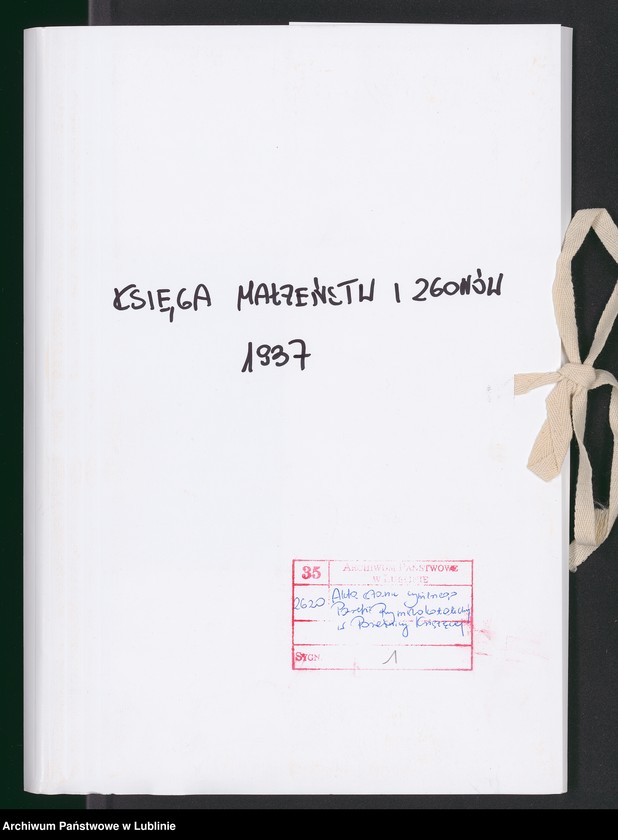 KSIĘGA MAŁŻEŃSTW I ZGONÓW
1937
35
ARCHIWUM PAŃSTWOWE
W LUBLINIE
2620
Akta stanu cywilnego
Parafii Rzymskokatolickiej
w Brzeźnicy Książęcej
SYGN.
1
Archiwum Państwowe w Lublinie